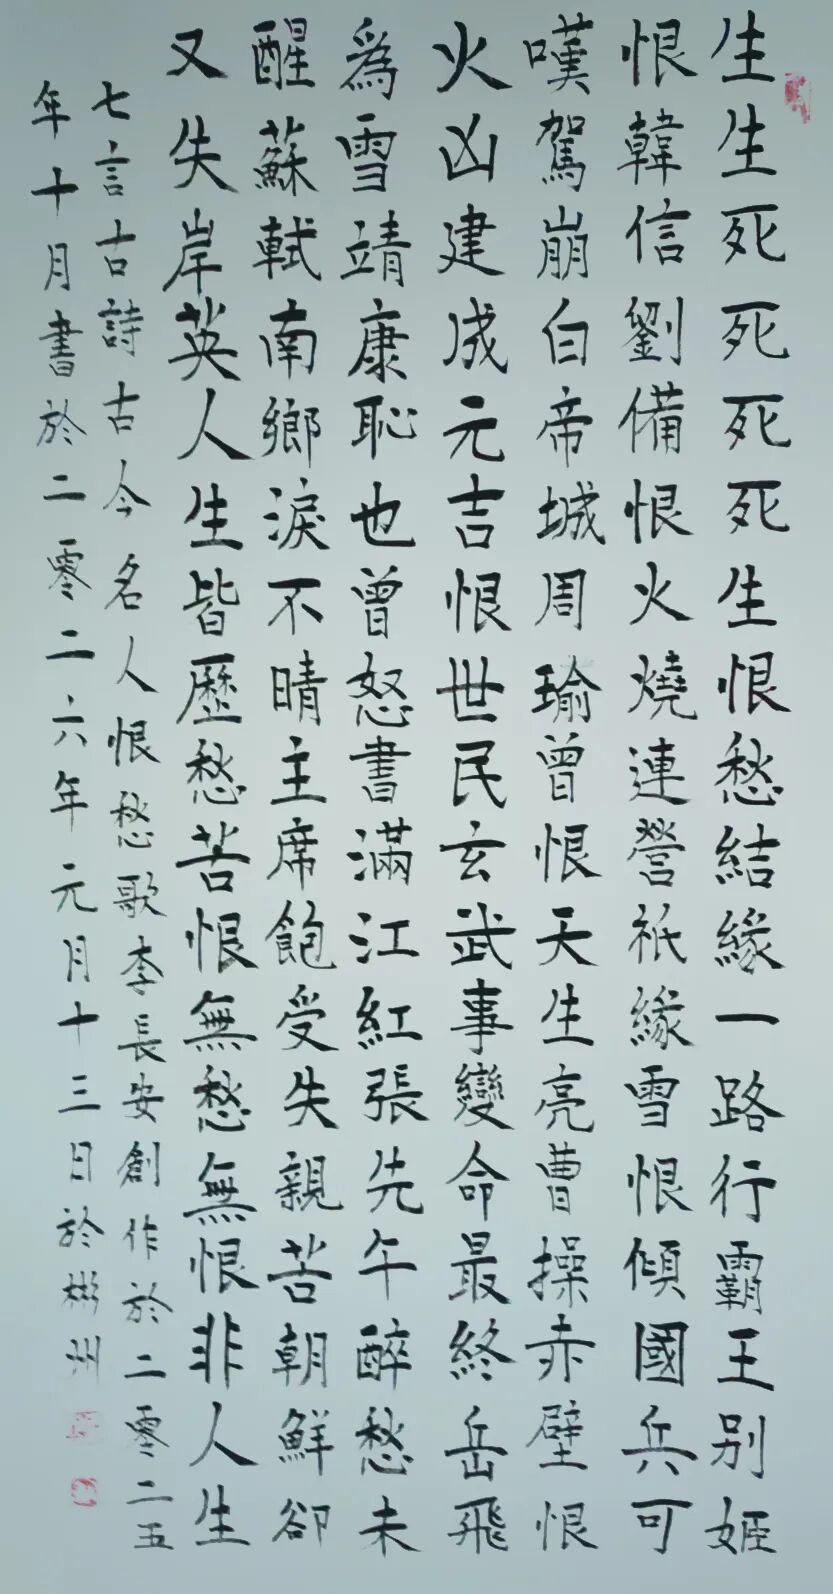 生生死死死死生恨愁結緣一路行霸王別姬
恨韓信劉備恨火燒連營祇緣雪恨傾國兵可
嘆駕崩白帝城周瑜曾恨天生亮曹操赤壁恨
火凶建成元吉恨世民玄武事變命最終岳飛
為雪靖康恥也曾怒書滿江紅張先午醉愁未
醒蘇軾南鄉淚不晴主席飽受失親苦朝鮮卻
又失岸英人生皆歷愁苦恨無愁無恨非人生
七言古詩古今名人恨愁歌李長安創作於二零二五
年十月書於二零二六年元月十三日於彬州